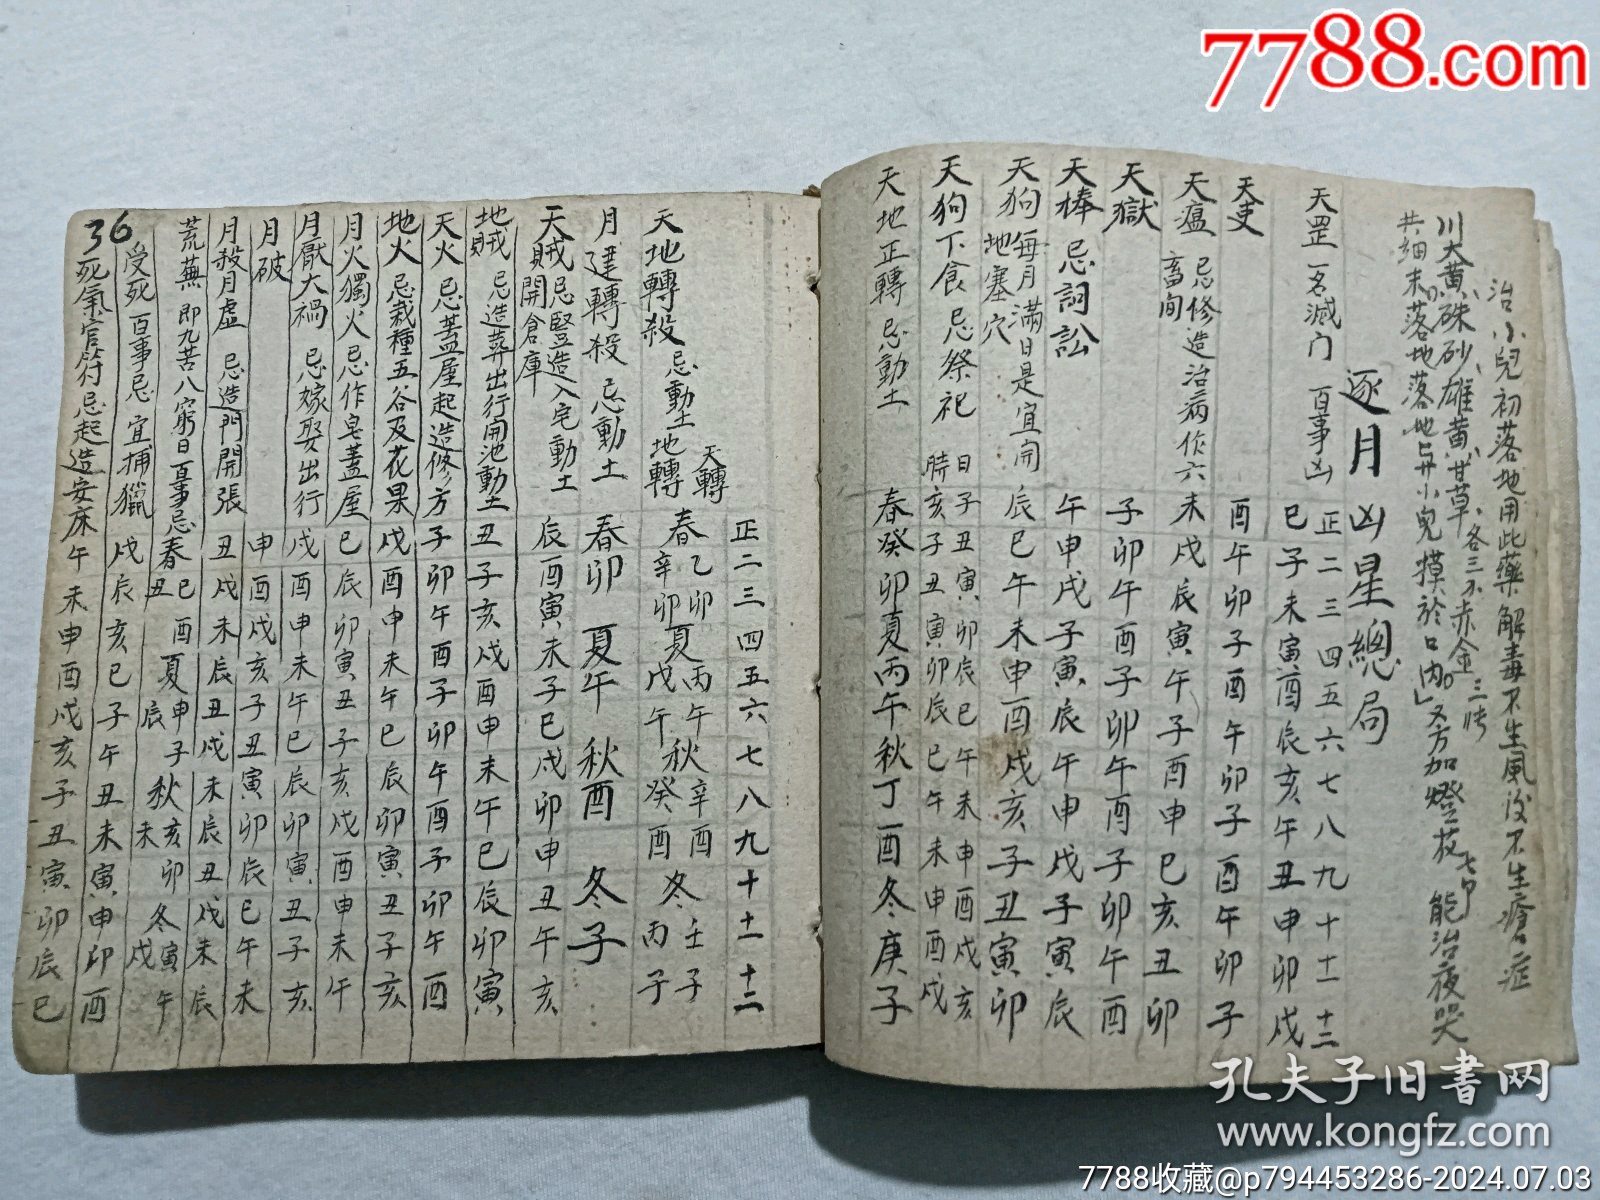 7788.com
治小兒初落地用此藥解毒不生風後不生瘡症
川大黄、硃砂、雄黄、甘草、各三分赤金三張
共細末落地落地与小兒摸於口內」又方加燈花七节能治夜哭
逐月凶星總局
正二三四五六七八九十十一十二
天罡一名滅门 百事凶 巳子未寅酉辰亥午丑申卯戌
天吏 酉午卯子酉午卯子酉午卯子
天瘟 忌修造治病作六畜间 未戌辰寅午子酉申巳亥丑卯
天獄 子卯午酉子卯午酉子卯午酉
天棒 忌詞訟 午申戌子寅辰午申戌子寅辰
天狗 每月滿日是宜開地塞穴 辰巳午未申酉戌亥子丑寅卯
天狗下食 忌祭祀 日子丑寅卯辰巳午未申酉戌亥
時亥子丑寅卯辰巳午未申酉戌
天地正轉 忌動土 春癸卯夏丙午秋丁酉冬庚子
正二三四五六七八九十十一十二
天地轉殺 忌動土 天轉 春乙卯夏丙午秋辛酉冬壬子
地轉 辛卯戊午癸酉丙子
月建轉殺 忌動土 春卯 夏午 秋酉 冬子
天賊 忌豎造入宅動土開倉庫 辰酉寅未子巳戌卯申丑午亥
地賊 忌造葬出行開池動土 丑子亥戌酉申未午巳辰卯寅
天火 忌蓋屋起造修方 子卯午酉子卯午酉子卯午酉
地火 忌栽種五谷及花果 戌酉申未午巳辰卯寅丑子亥
月火獨火 忌作皂蓋屋 巳辰卯寅丑子亥戌酉申未午
月厭大禍 忌嫁娶出行 戌酉申未午巳辰卯寅丑子亥
月破 申酉戌亥子丑寅卯辰巳午未
月殺月虛 忌造門開張 丑戌未辰丑戌未辰丑戌未辰
荒蕪 即九苦八窮日百事忌 春巳酉丑 夏申子辰 秋亥卯未 冬寅午戌
受死 百事忌 宜捕獵 戌辰亥巳子午丑未寅申卯酉
死氣官符 忌起造安床 午未申酉戌亥子丑寅卯辰巳
36
孔夫子旧書网
www.kongfz.com
7788收藏@p794453286-2024.07.03